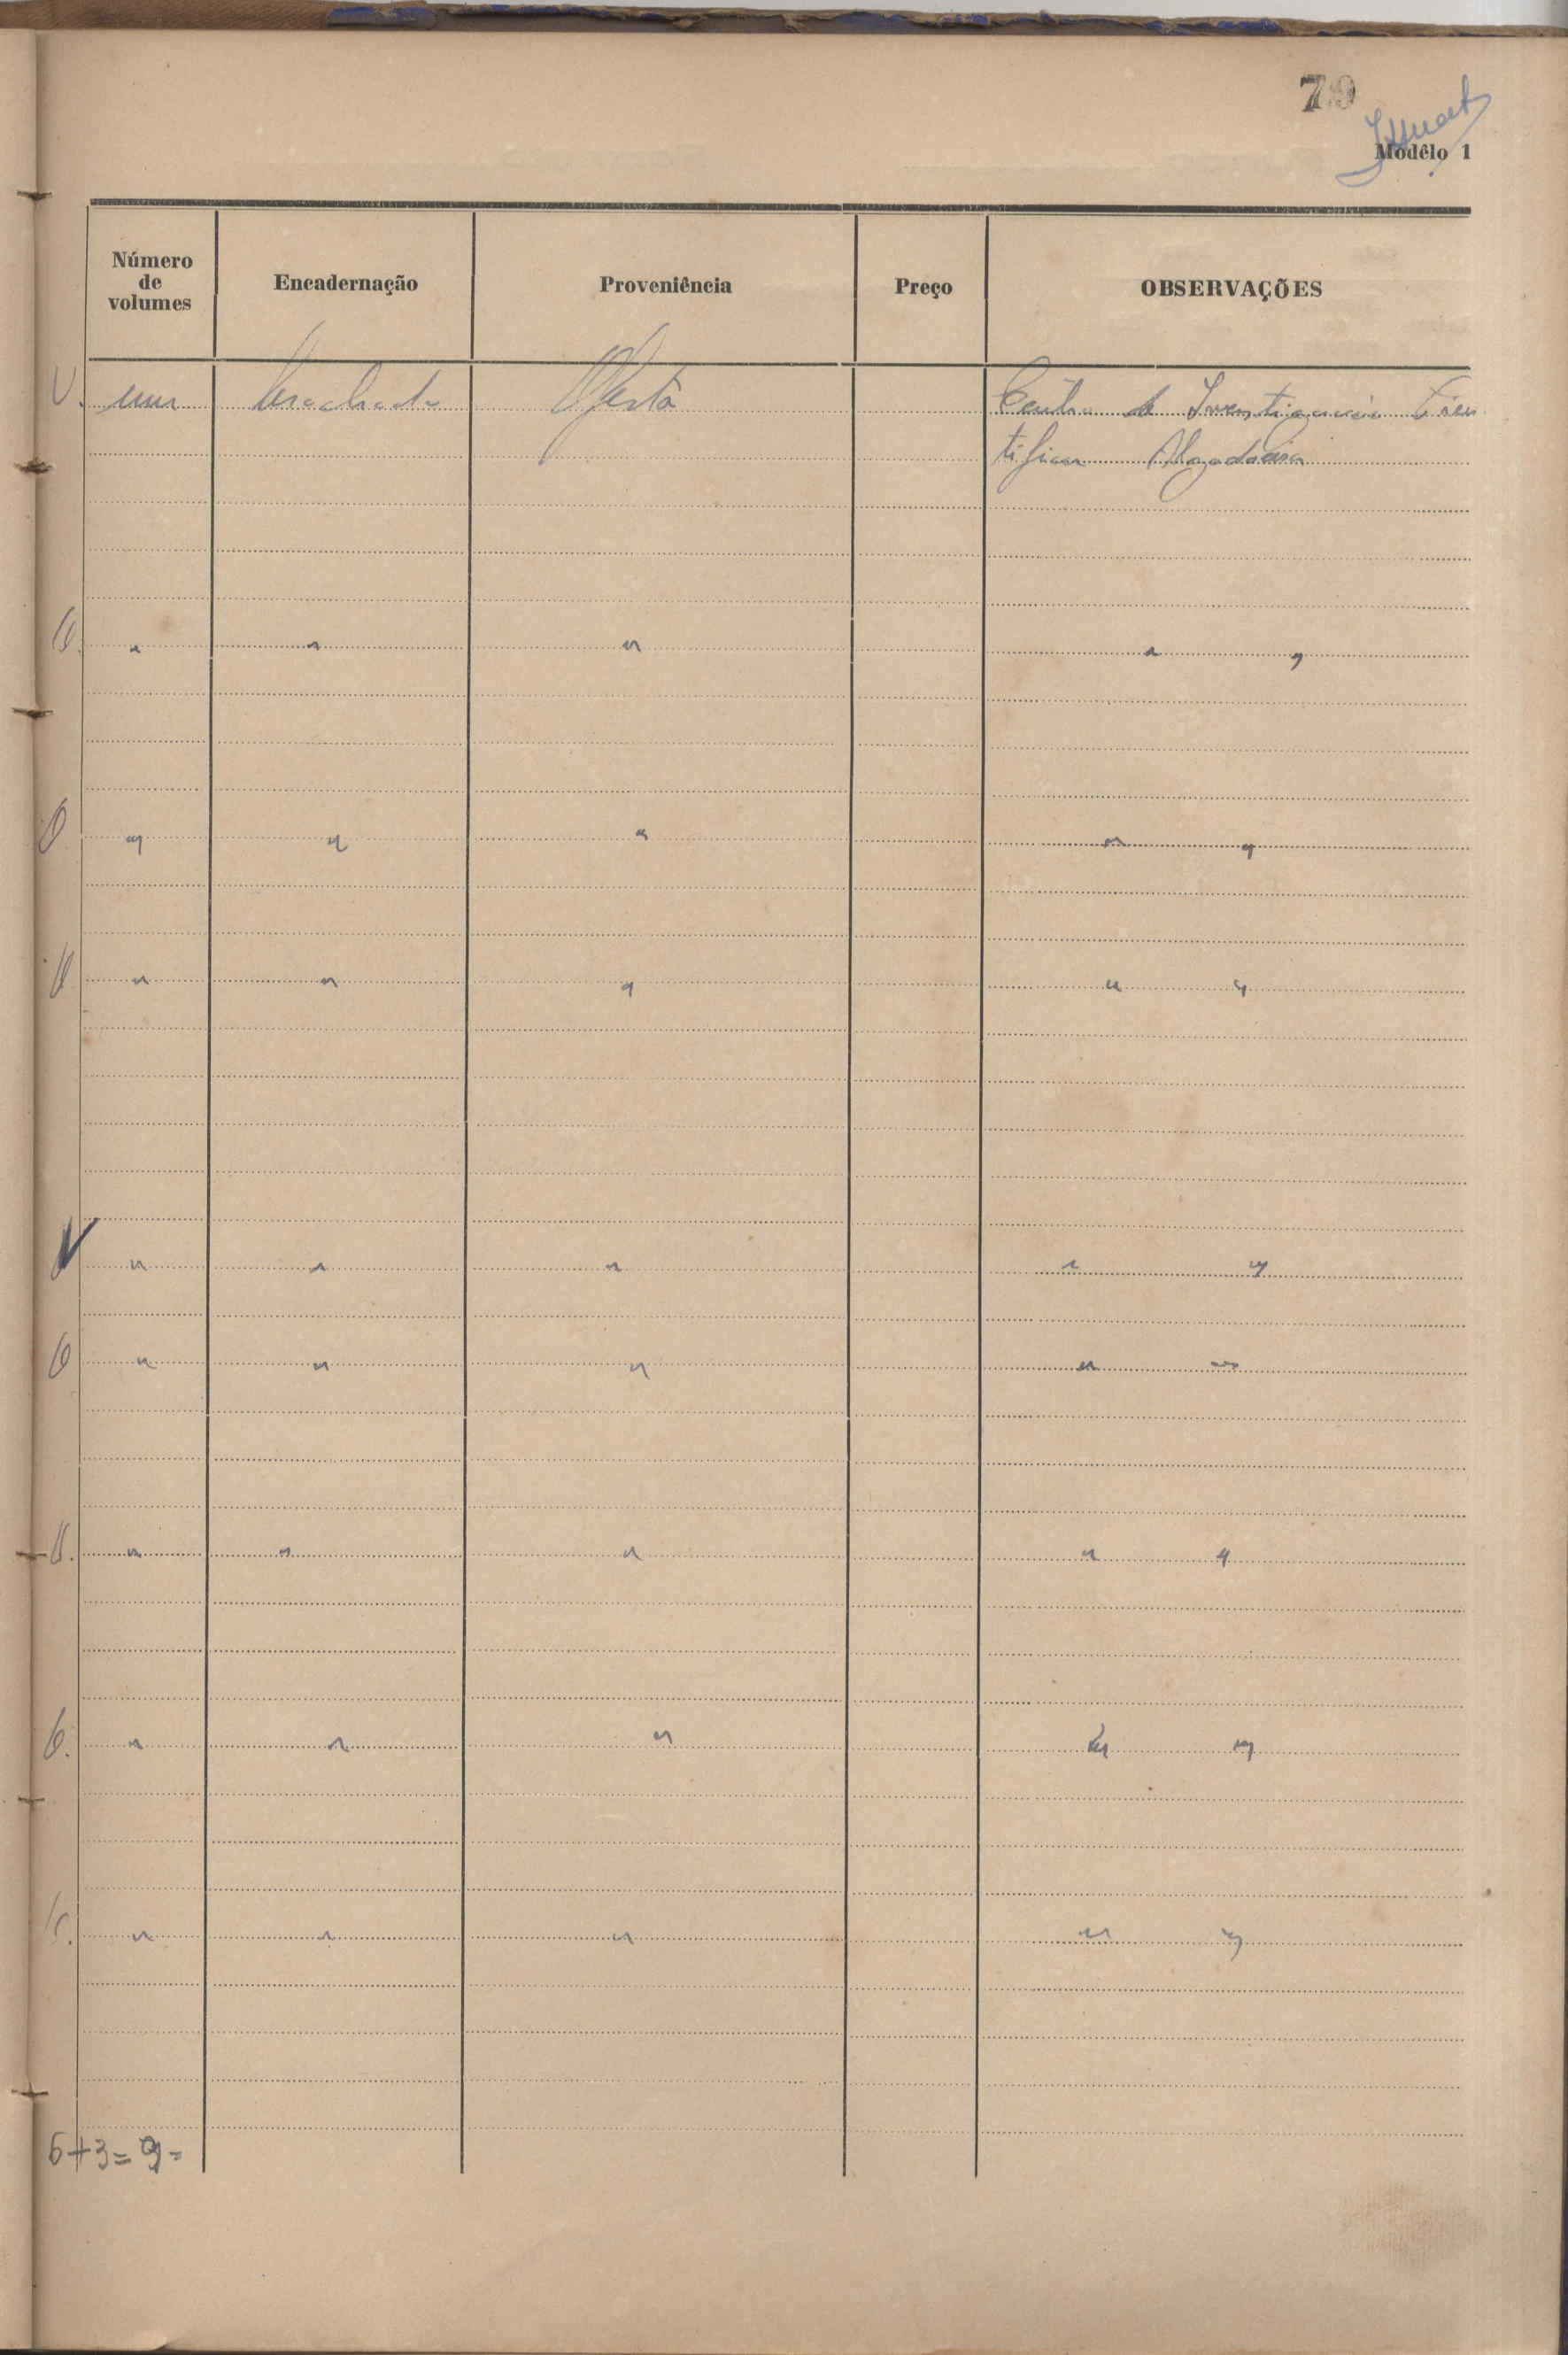 79
Modêlo 1
Número
de
volumes
Encadernação
Proveniência
Preço
OBSERVAÇÕES
V. um Brochado Oferta Centro de Investigação Cien
tifica Algodoeira
" " " " "
" " " " "
" " " " "
V " " " " "
" " " " "
" " " " "
" " " " "
" " " " "
6+3=9=